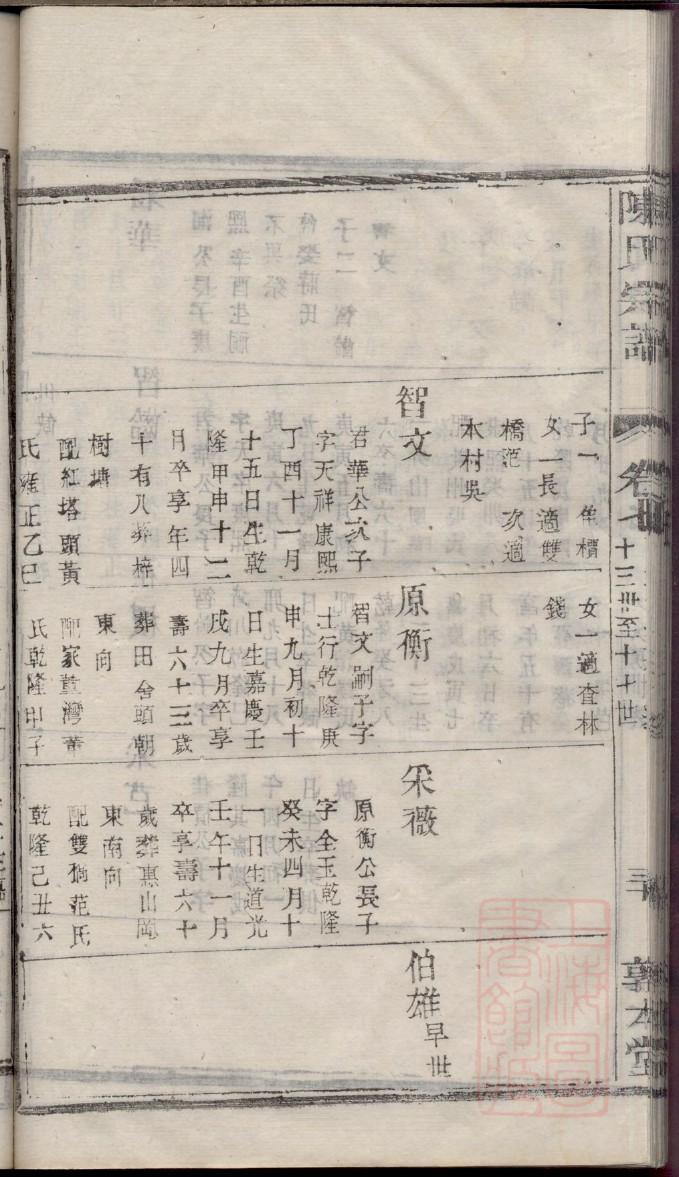 陳氏宗譜
卷
十三世至十七世
敦大堂
子一
女一長適雙
橋范 次適
木村吳
智文
君華公次子
字天祥康熙
丁酉十一月
十五日生乾
隆甲申十二
月卒享年四
十有八葬梓
樹塘
配紅塔頭黃
氏雍正乙巳
女一適查林
錢
原衡
智文嗣子字
士行乾隆庚
申九月初十
日生嘉慶壬
戌九月卒享
壽六十三歲
葬田舍頭朝
東向
配家董灣董
氏乾隆甲子
采薇
原衡公長子
字全玉乾隆
癸未四月十
一日生道光
壬午十一月
卒享壽六十
歲葬惠山岡
東南向
配雙橋范氏
乾隆己丑六
伯雄早世